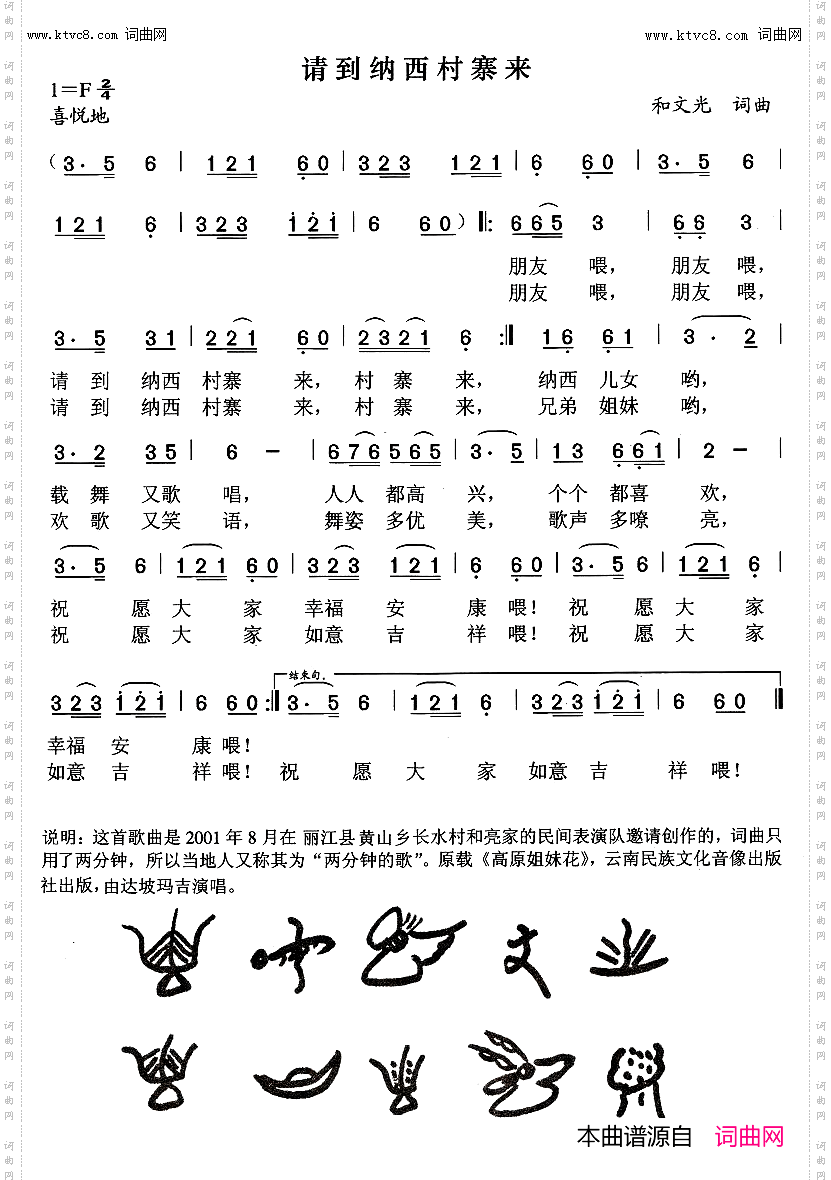 www.ktvc8.com 词曲网
www.ktvc8.com 词曲网
请到纳西村寨来
1=F 2/4
喜悦地
和文光 词曲
(3· 5 6 | 1 2 1 6 0 | 3 2 3 1 2 1 | 6 6 0 | 3· 5 6 |
1 2 1 6 | 3 2 3 1 2 1 | 6 6 0) ‖: 6 6 5 3 | 6 6 3 |
朋友 喂, 朋友 喂,
朋友 喂, 朋友 喂,
3· 5 3 1 | 2 2 1 6 0 | 2 3 2 1 6 :‖ 1 6 6 1 | 3· 2 |
请 到 纳西 村寨 来, 村 寨 来, 纳西 儿女 哟,
请 到 纳西 村寨 来, 村 寨 来, 兄弟 姐妹 哟,
3· 2 3 5 | 6 - | 6 7 6 5 6 5 | 3· 5 | 1 3 6 6 1 | 2 - |
载 舞 又歌 唱, 人人 都高 兴, 个个 都喜 欢,
欢 歌 又笑 语, 舞姿 多优 美, 歌声 多嘹 亮,
3· 5 6 | 1 2 1 6 0 | 3 2 3 1 2 1 | 6 6 0 | 3· 5 6 | 1 2 1 6 |
祝 愿 大 家 幸福 安 康 喂! 祝 愿 大 家
祝 愿 大 家 如意 吉 祥 喂! 祝 愿 大 家
结束句。
3 2 3 1 2 1 | 6 6 0 :‖ 3· 5 6 | 1 2 1 6 | 3 2 3 1 2 1 | 6 6 0 ‖
幸福 安 康 喂!
如意 吉 祥 喂! 祝 愿 大 家 如意 吉 祥 喂!
说明: 这首歌曲是 2001 年 8 月在 丽江县 黄山乡长水村和亮家的民间表演队邀请创作的, 词曲只
用了两分钟, 所以当地人又称其为“两分钟的歌”。原载《高原姐妹花》, 云南民族文化音像出版
社出版, 由达坡玛吉演唱。
本曲谱源自 词曲网